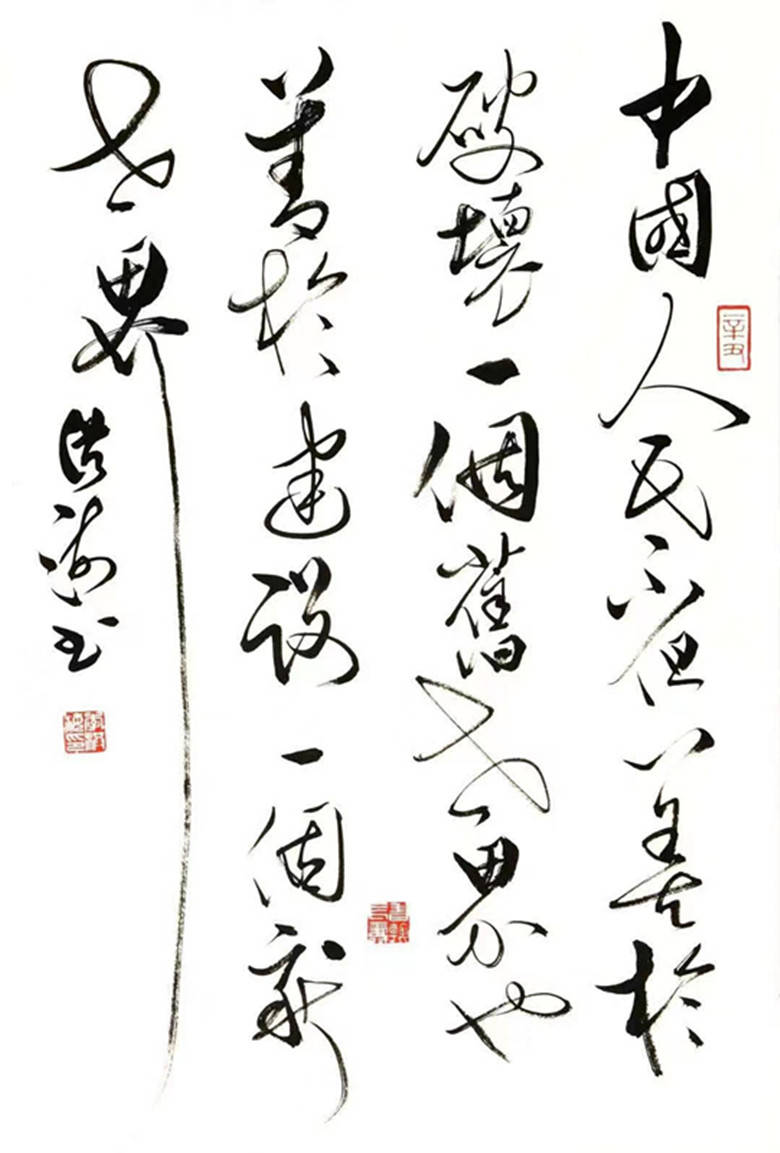 中國人民不但善於
破壞一個舊世界也
善於建设一個新
世界
书
辛丑